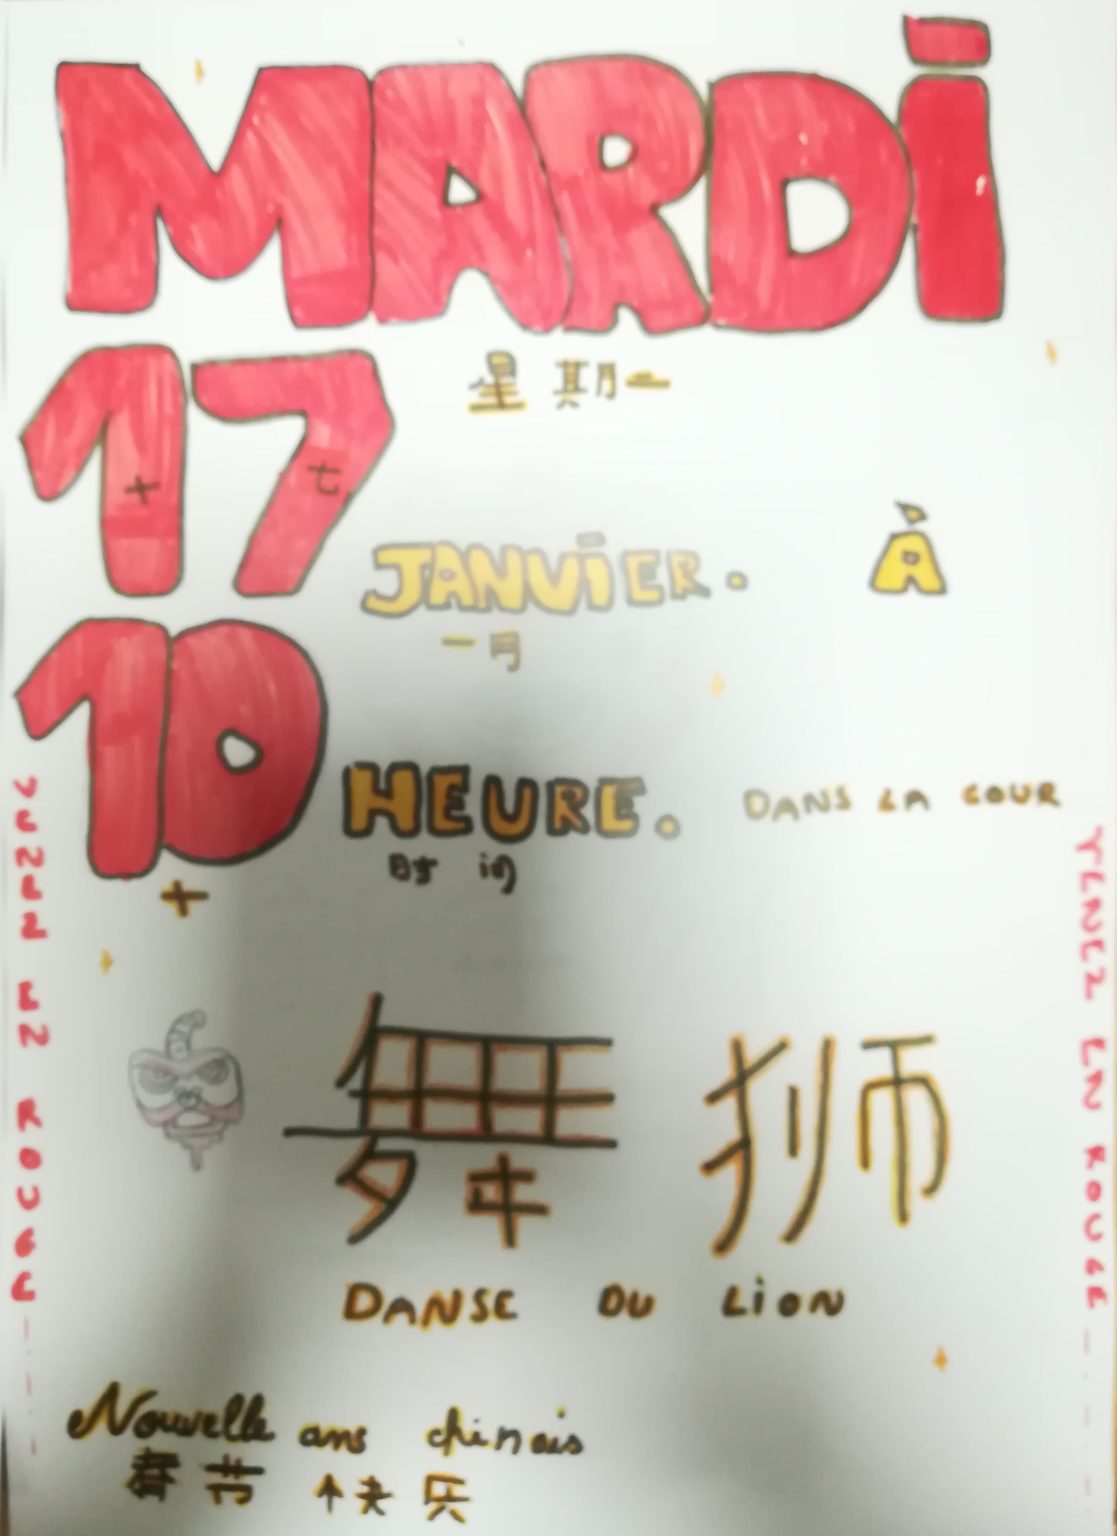 MARDI
17
星期一
十 七
JANVIER. À
一月
10
HEURE. DANS LA COUR
时 间
十
舞 狮
DANSE DU LION
Nouvelle ans chinois
春节 快乐
VENEZ EN ROUGE
VENEZ EN ROUGE